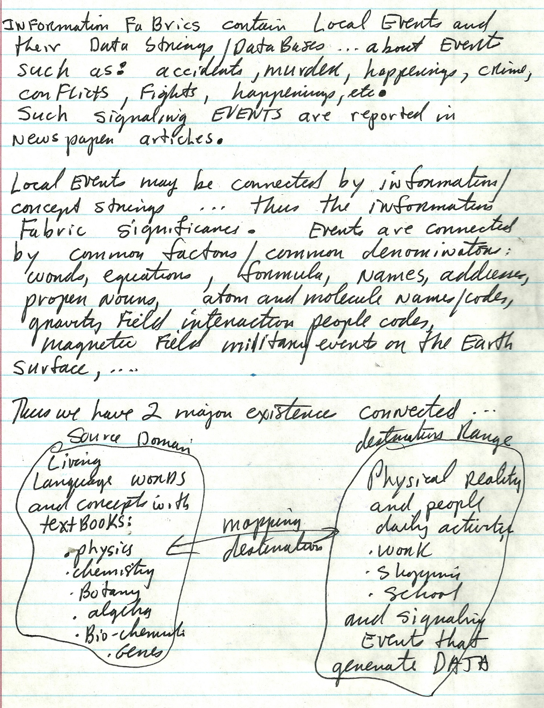 INFormation FaBrics contain Local Events and
their Data Strings/DataBases ... about Event
such as: accidents, murder, happenings, crime,
conFlicts, Fights, happenings, etc.
Such signaling EVENTS are reported in
Newspaper articles.
Local Events may be connected by information/
concept strings ... thus the information
Fabric significance. Events are connected
by common factors/common denominators:
words, equations, formula, Names, addresses,
proper nouns, atom and molecule names/codes,
gravity Field interaction people codes,
magnetic Field military events on the Earth
Surface, ....
Thus we have 2 major existence connected ...
Source Domain
Living
Language words
and concepts with
textBOOKS:
.physics
.chemistry
.Botany
.algebra
.Bio-chemistry
.Genes
mapping
destination
destination Range
Physical Reality
and people
daily activity
.Work
.Shopping
.School
and signaling
Events that
generate DATA